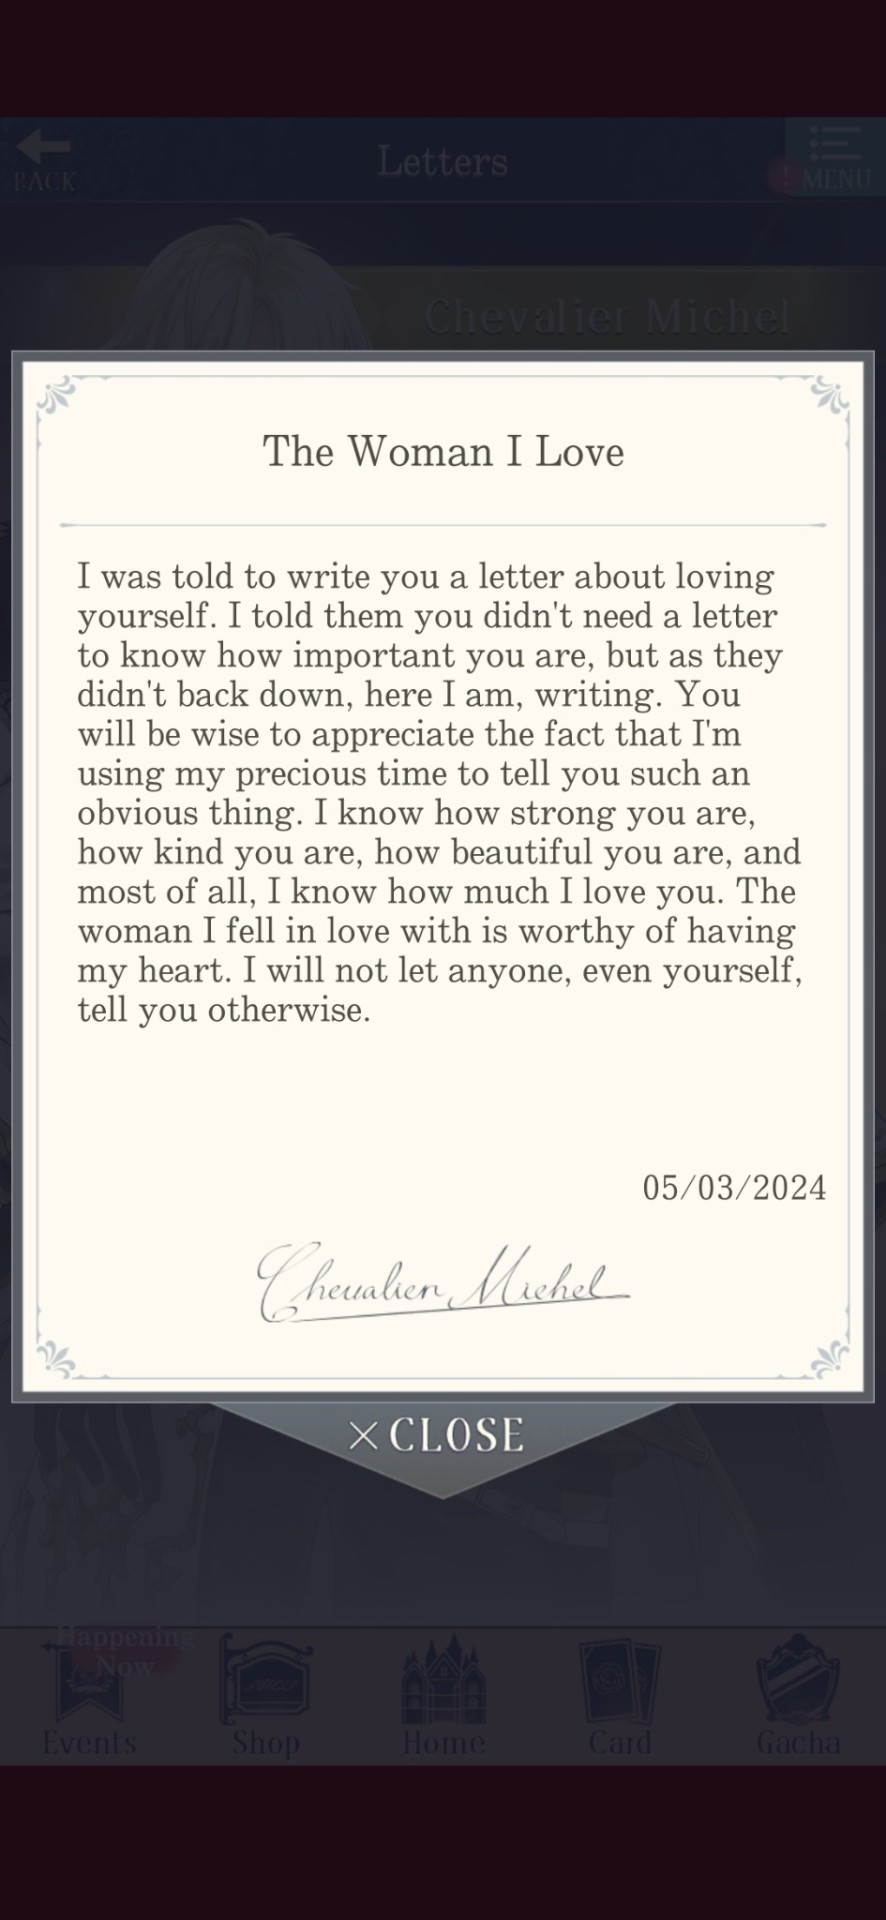 BACK
Letters
! MENU
Chevalier Michel
The Woman I Love
I was told to write you a letter about loving
yourself. I told them you didn't need a letter
to know how important you are, but as they
didn't back down, here I am, writing. You
will be wise to appreciate the fact that I'm
using my precious time to tell you such an
obvious thing. I know how strong you are,
how kind you are, how beautiful you are, and
most of all, I know how much I love you. The
woman I fell in love with is worthy of having
my heart. I will not let anyone, even yourself,
tell you otherwise.
05/03/2024
Chevalier Michel
×CLOSE
Happening
Now
Events
Shop
Home
Card
Gacha